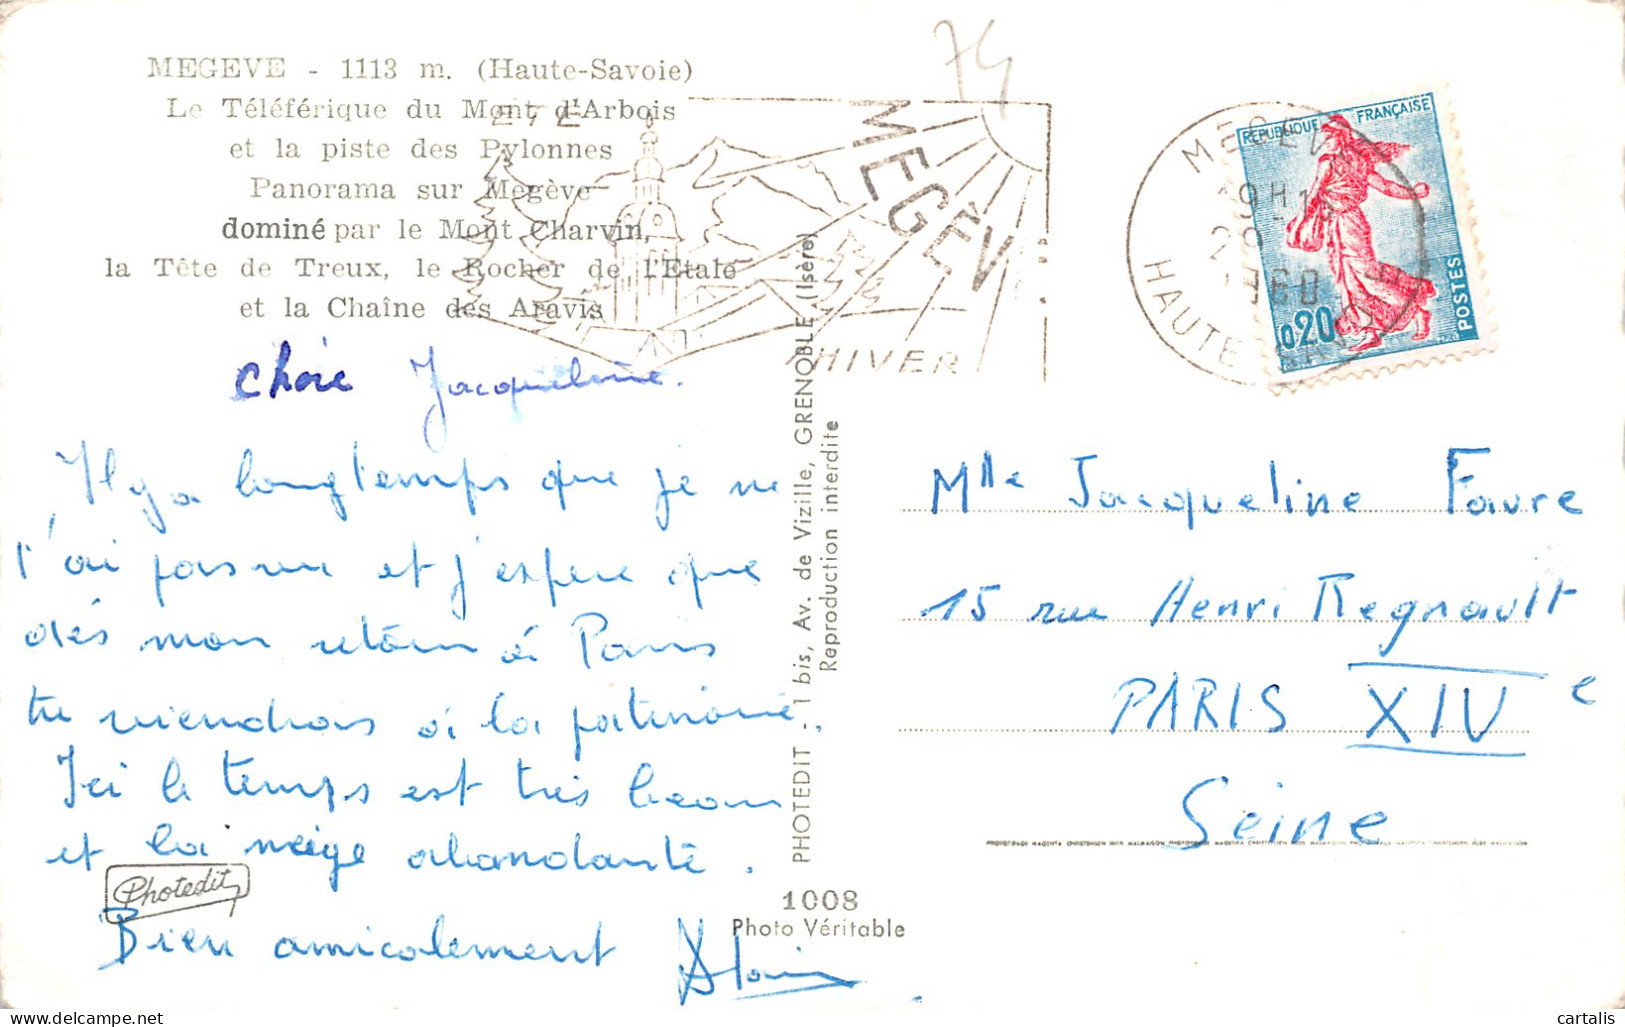 74
MEGEVE - 1113 m. (Haute-Savoie)
Le Téléférique du Mont d'Arbois
et la piste des Pylonnes
Panorama sur Megève
dominé par le Mont Charvin,
la Tête de Treux, le Rocher de l'Etale
et la Chaîne des Aravis
ETE
MEGÈV
HIVER
MEGEV
19H15
1960
HAUTE-SAVOI
REPUBLIQUE FRANÇAISE
0,20
POSTES
Chère Jacqueline.
Il y a longtemps que je ne
t'ai pas vu et j'espère que
dès mon retour à Paris
tu viendras à la patinoire.
Ici le temps est très beau
et la neige abondante.
Bien amicalement Alain
Photedit
PHOTEDIT - 1 bis, Av. de Vizille, GRENOBLE (Isère)
Reproduction interdite
1008
Photo Véritable
Mlle Jacqueline Favre
15 rue Henri Regnault
PARIS XIVe
Seine
cartalis